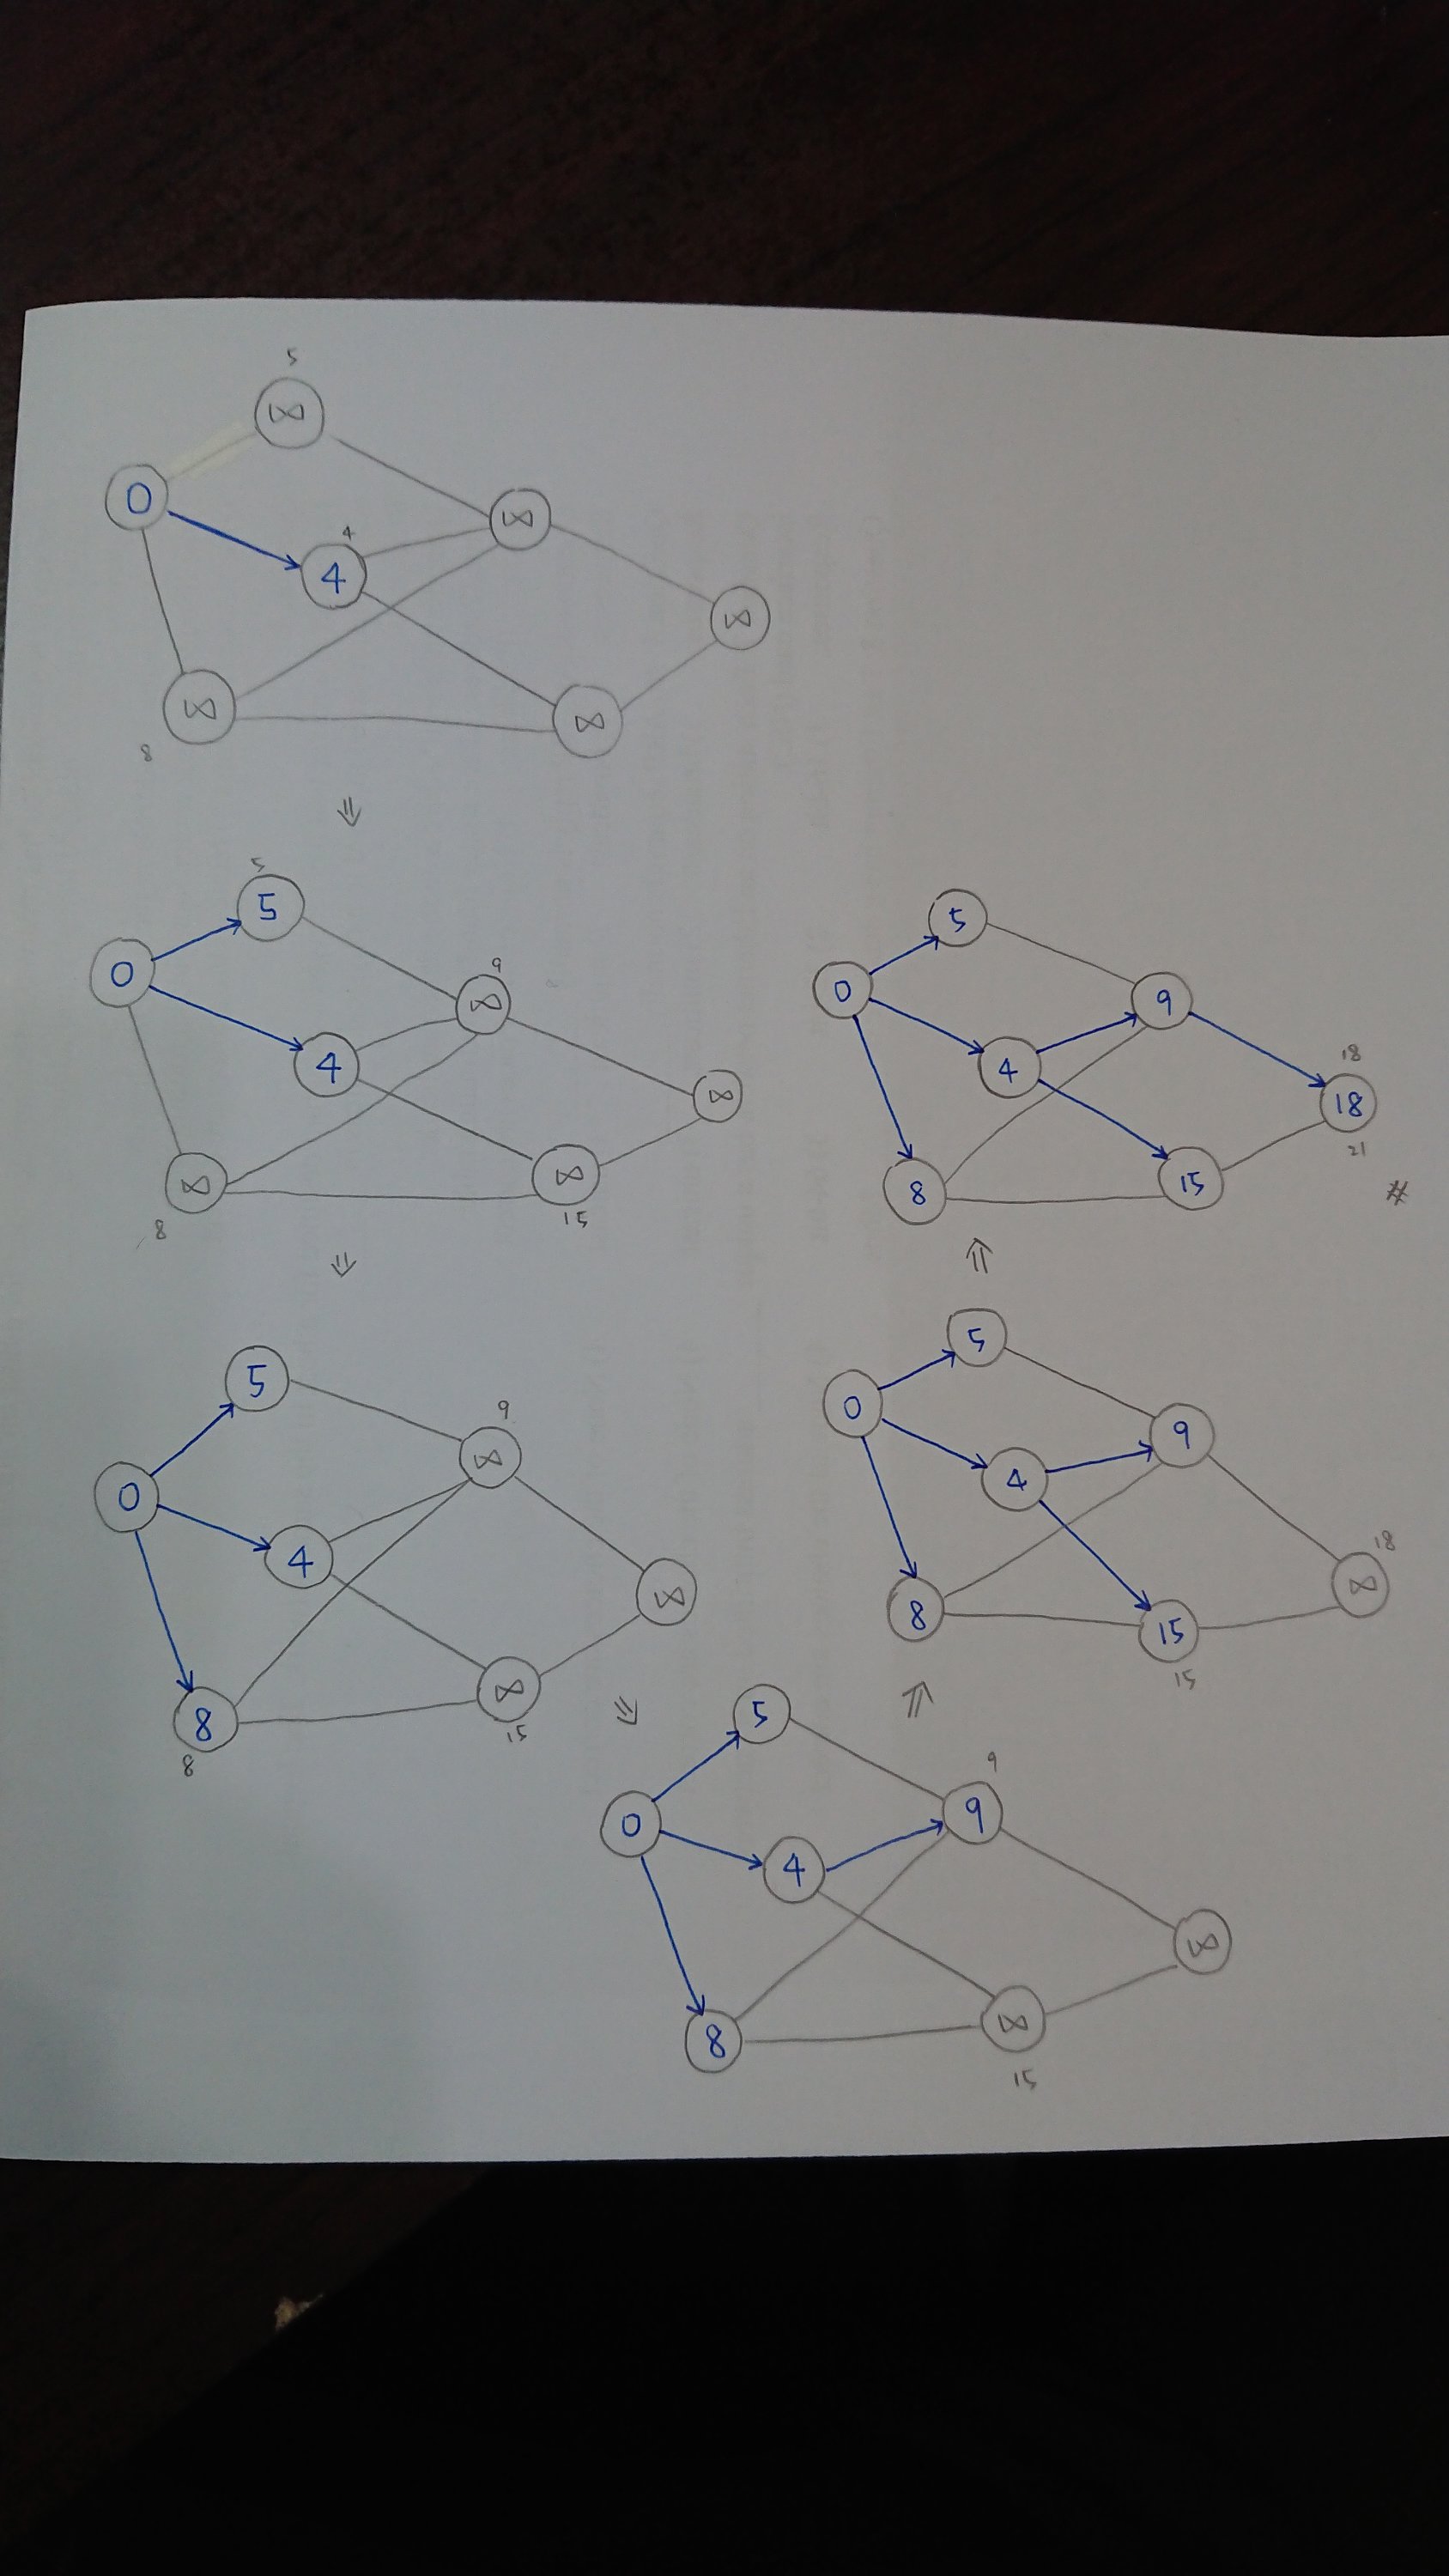 5
∞
0
4
∞
4
∞
∞
∞
8
⇓
5
5
0
9
∞
4
∞
∞
∞
8
15
⇓
5
9
0
∞
4
∞
8
∞
8
15
⇘
5
9
0
9
4
∞
8
∞
15
⇗
5
0
9
4
18
∞
8
15
15
⇑
5
0
9
4
18
18
21
8
15
#